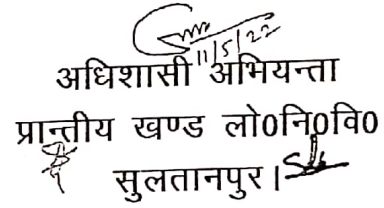 11/5/22
अधिशासी अभियन्ता
प्रान्तीय खण्ड लो0नि0वि0
सुलतानपुर।